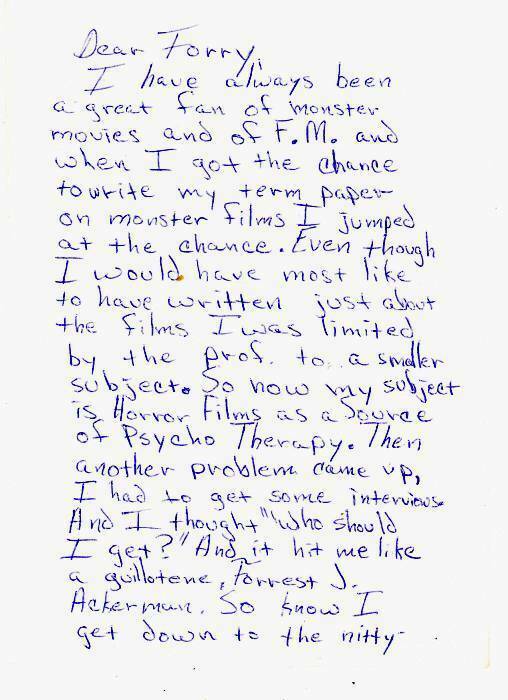 Dear Forry,
I have always been
a great fan of monster
movies and of F.M. and
when I got the chance
to write my term paper
on monster films I jumped
at the chance. Even though
I would have most like
to have written just about
the films I was limited
by the prof. to a smaller
subject. So now my subject
is Horror Films as a Source
of Psycho Therapy. Then
another problem came up,
I had to get some interviews.
And I thought "Who should
I get?" And it hit me like
a guillotene, Forrest J.
Ackerman. So know I
get down to the nitty-